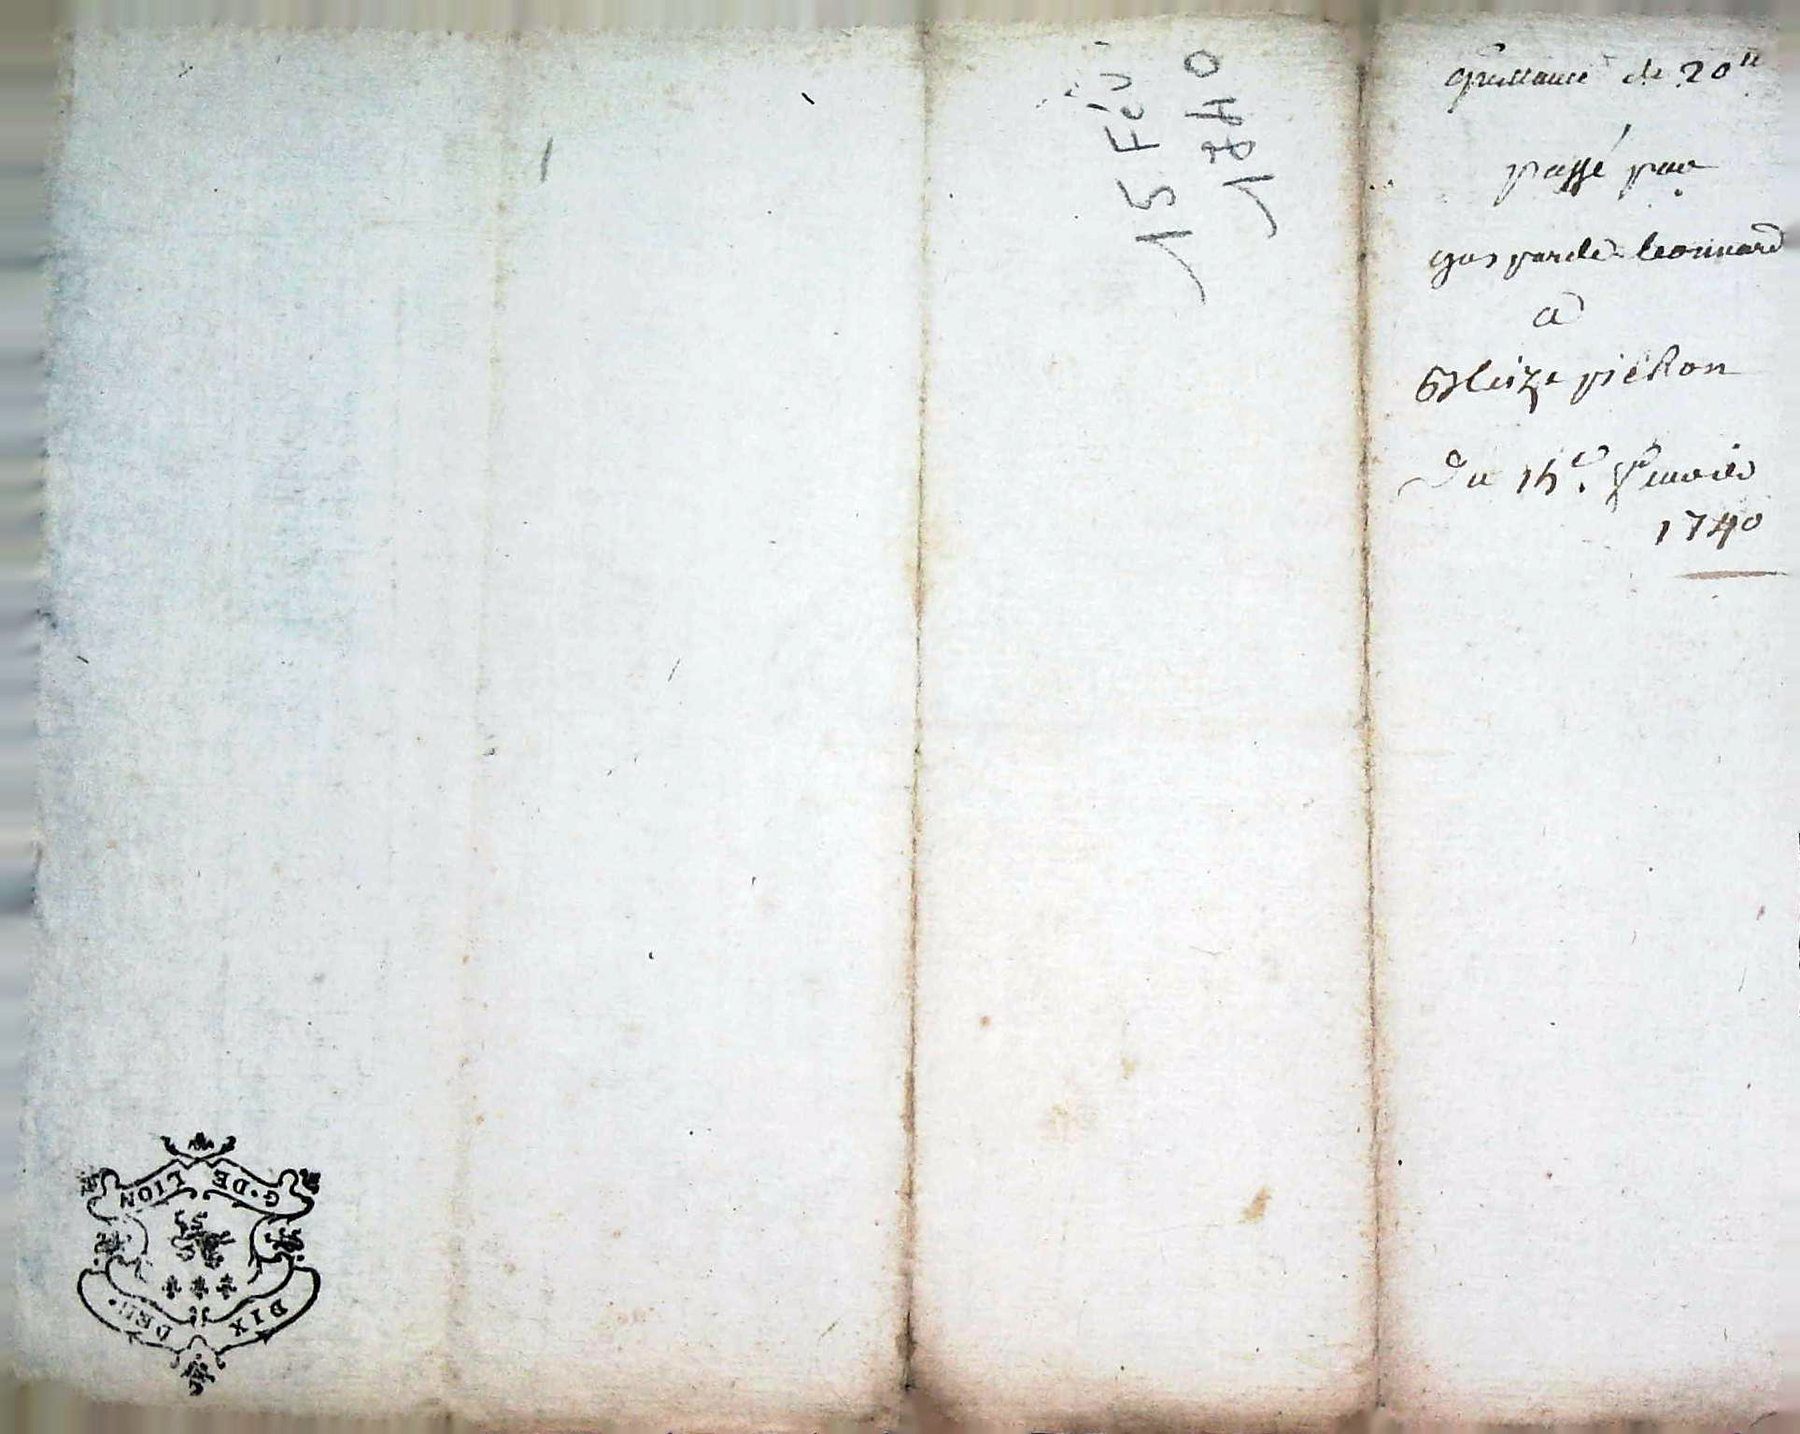 quittance de 20ᵗᵗ
passé par
gasparde leonnard
a
Bleize pichon
Du 15ᵉ. fevrier
1740
15 Fév
1740
G · DE LION
DIX DEN ·